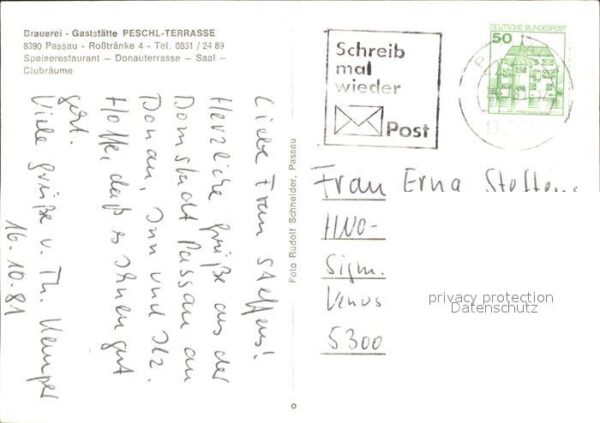 Brauerei - Gaststätte PESCHL-TERRASSE
8390 Passau - Roßtränke 4 - Tel. 0851 / 24 89
Speiserestaurant — Donauterrasse — Saal —
Clubräume
Liebe Frau Steffens!
Herzliche Grüße aus der
Domstadt Passau an
Donau, Inn und Ilz.
Hoffe, daß es Ihnen gut
geht.
Viele Grüße v. Th. Kemper
16.10.81
Foto Rudolf Schneider, Passau
Schreib
mal
wieder
Post
DEUTSCHE BUNDESPOST
50
Frau Erna Steffen
HNO-
Sigm.
Venus
5300
privacy protection
Datenschutz